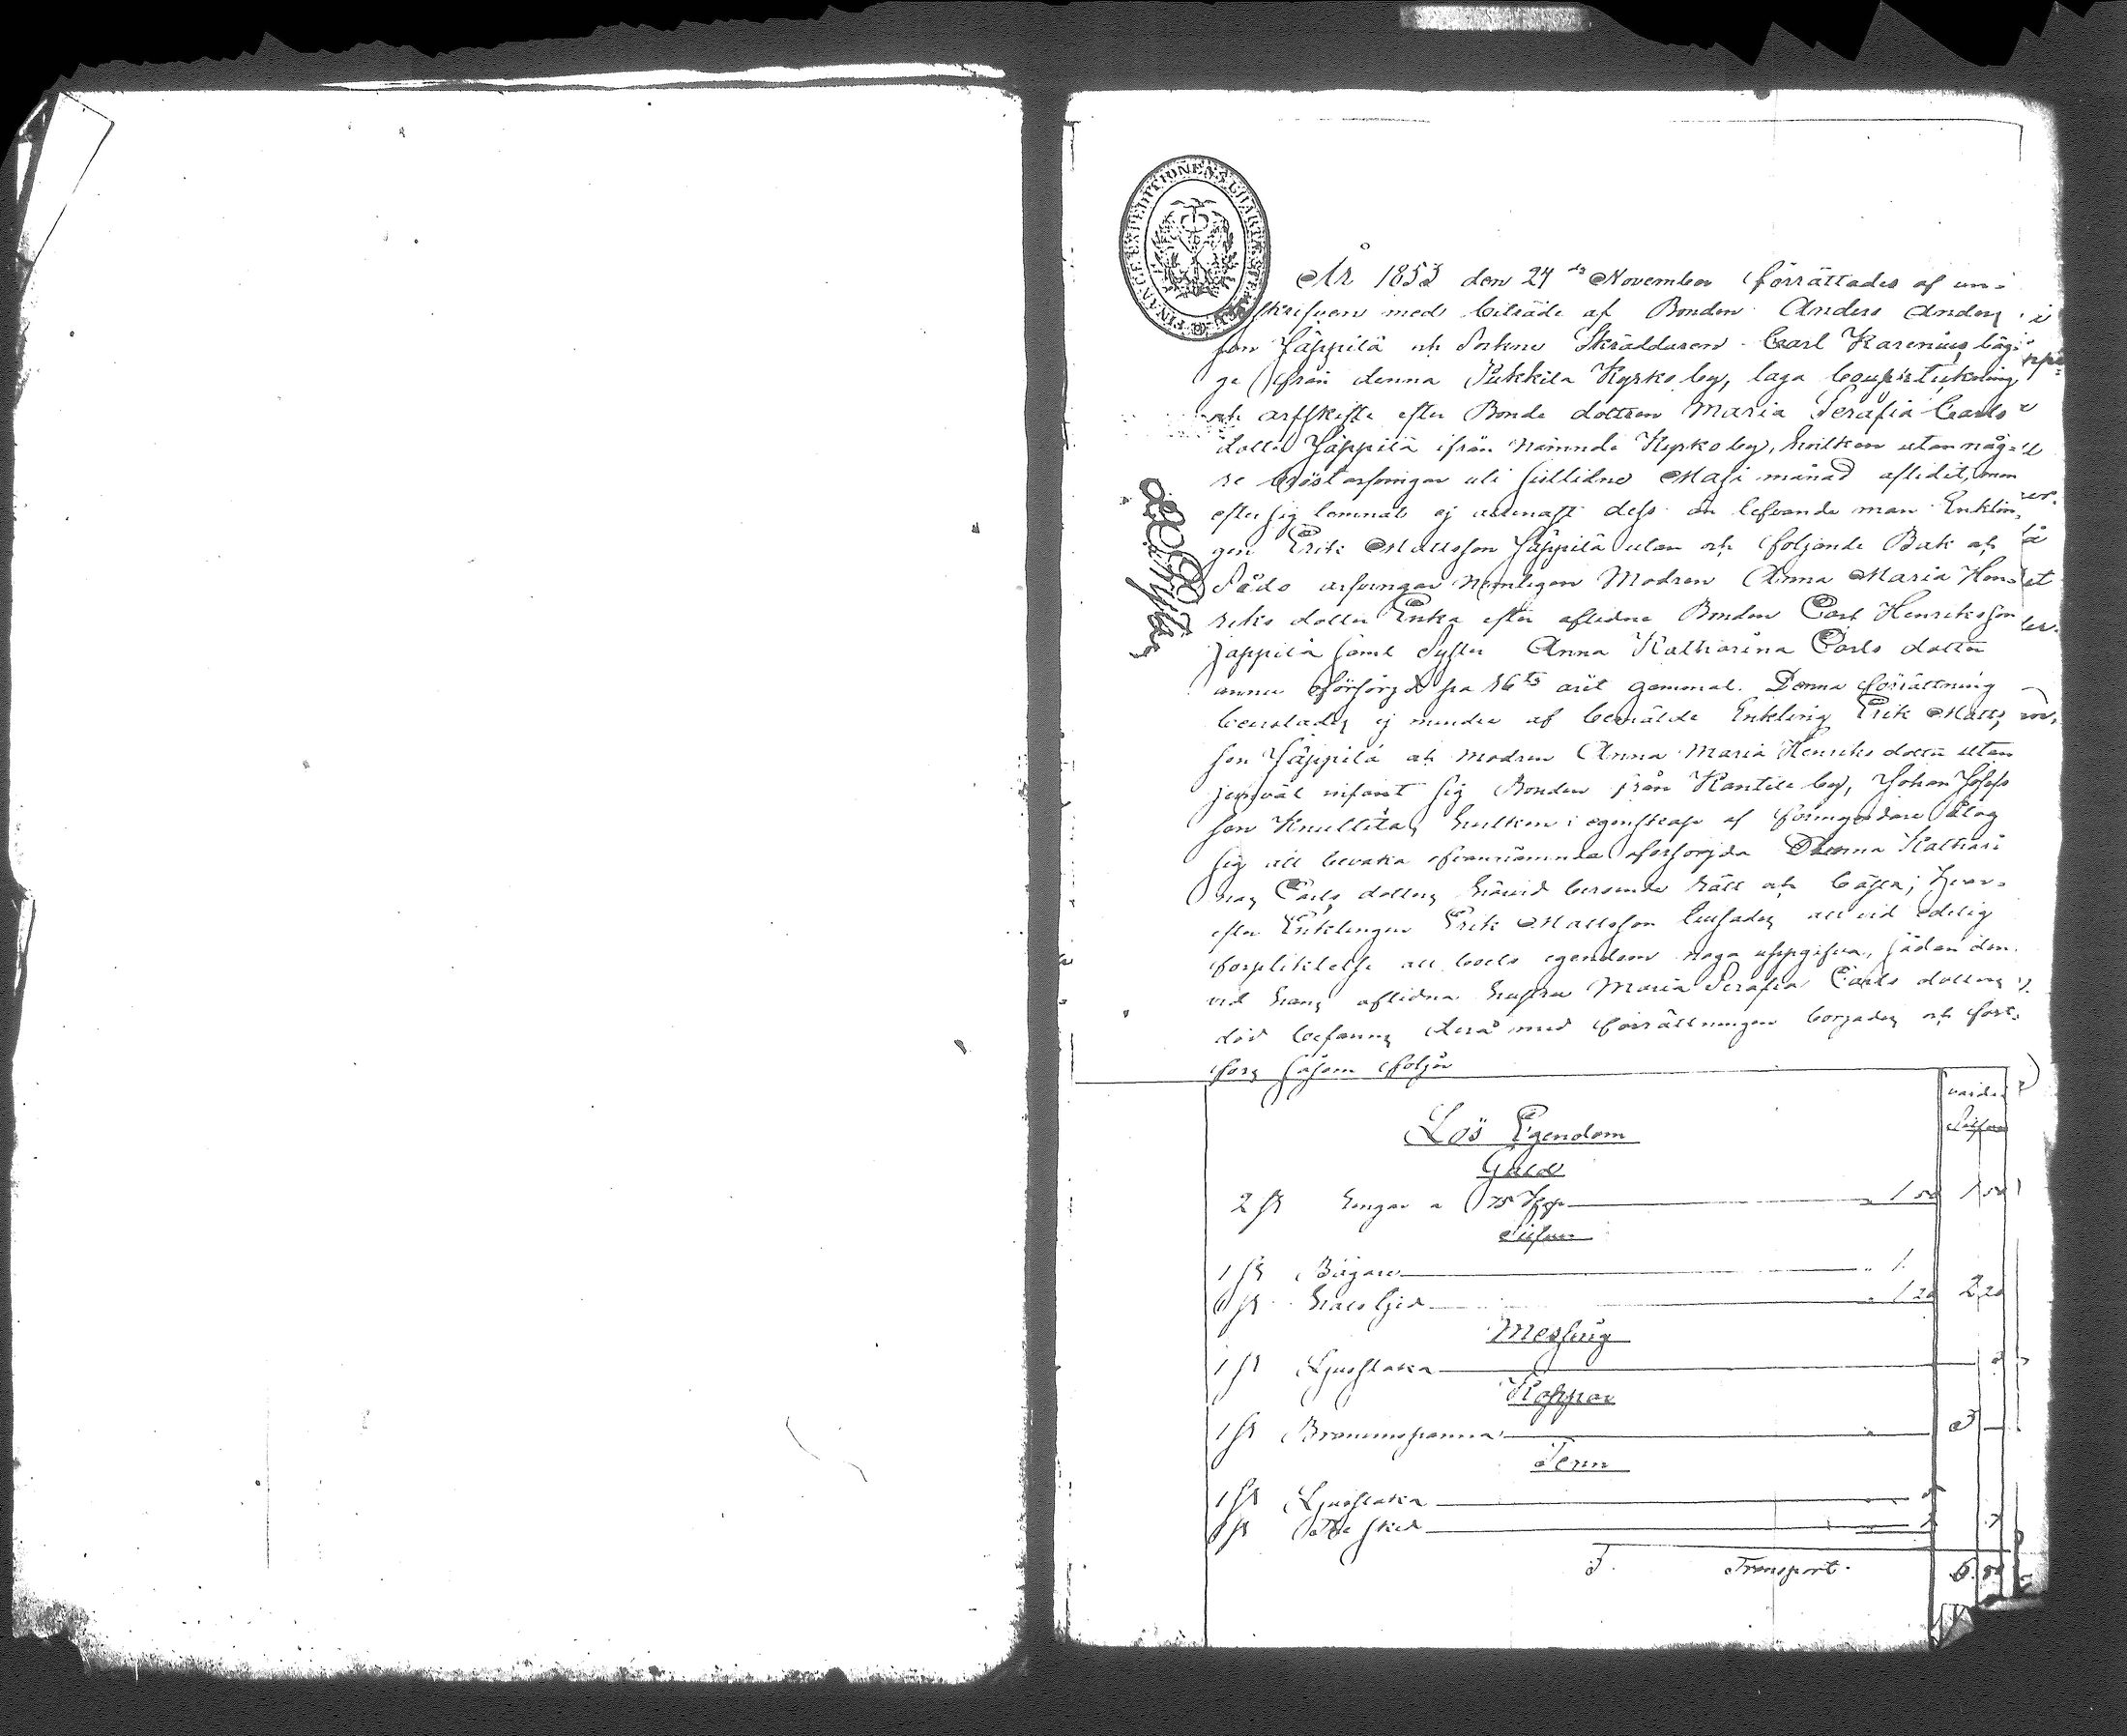 FINANCE EXPEDITIONENS CHARTÆ STEMPEL
År 1853 den 24 de November förrättades af un-
skrifven med biträde af Bonden Anders Anders
son Jäppilä och Sockne Skräddaren Carl Karenius bäg-
ge från denna Pukkila Kyrko by, laga bouptekning
och arfskifte efter Bonde dottren Maria Serafia Carls
dotter Jäppilä ifrån nämnde Kyrko by, hvilken utan någ-
re bröst arfvingar uti sistlidne Maji månad aflidit, men
efter sig lemnat ej allenast dess än lefvande man Enklin-
gen Erik Mattsson Jäppilä utan och följande Bak och
Sido arfvingar nemligen Modren Anna Maria Hen-
riks dotter Enka efter aflidne Bonden Carl Henriksson
Jäppilä samt Syster Anna Katharina Carls dotter
ännu oförsörjd på 16 te året gammal. Denna förrättning
bevistades ej mindre af bemälde Enkling Erik Matts
son Jäppilä och modren Anna Maria Henriks dotter utan
jemväl infant sig Bonden från Kantele by, Johan Josefs
son Knuttila, hvilken i egenskap af förmyndare åtog
sig att bevaka ofvannämnda oförsörjda Anna Kathari
nas Carls dotters härvid beroende rätt och bästa; hvar-
efter Enklingen Erik Mattsson tillsades att vid edelig
förpliktelse all boets egendom noga uppgifva, sådan den
vid hans aflidna hustru Maria Serafia Carls dotters
död befanns derå med förrättningen börjades och fort-
fors såsom följer
värde
Silfver
Lös Egendom
Guld
2 st Ringar a 75 Kop 1 50 1 50
Silfver
1 st Bägare 1.
6 st 1 20 2 20
Messing
1 st Ljusstaka
Koppar
1 st Brännvinspanna
Tenn
1 st Ljusstaka
st sked
Transport.